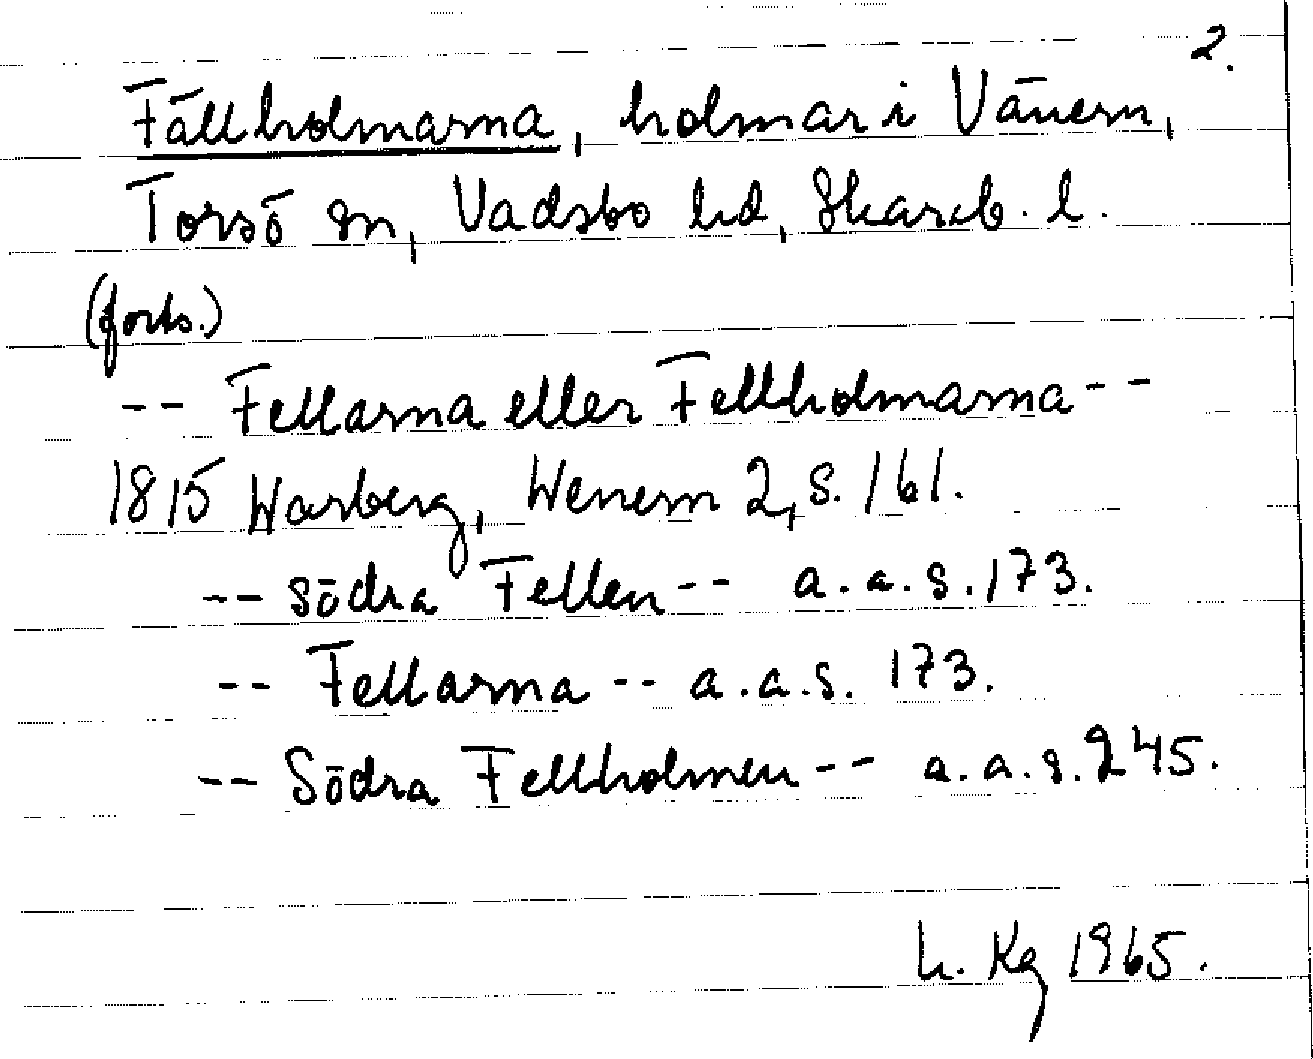 2.
Fällholmarna, holmar i Vänern,
Torsö sn, Vadsbo hd, Skarab. l.
(forts.)
-- Fellarna eller Fellholmarna --
1815 Warberg, Wenern 2, s. 161.
-- södra Fellen -- a. a. s. 173.
-- Fellarna -- a. a. s. 173.
-- Södra Fellholmen -- a. a. s. 245.
h. Kg 1965.